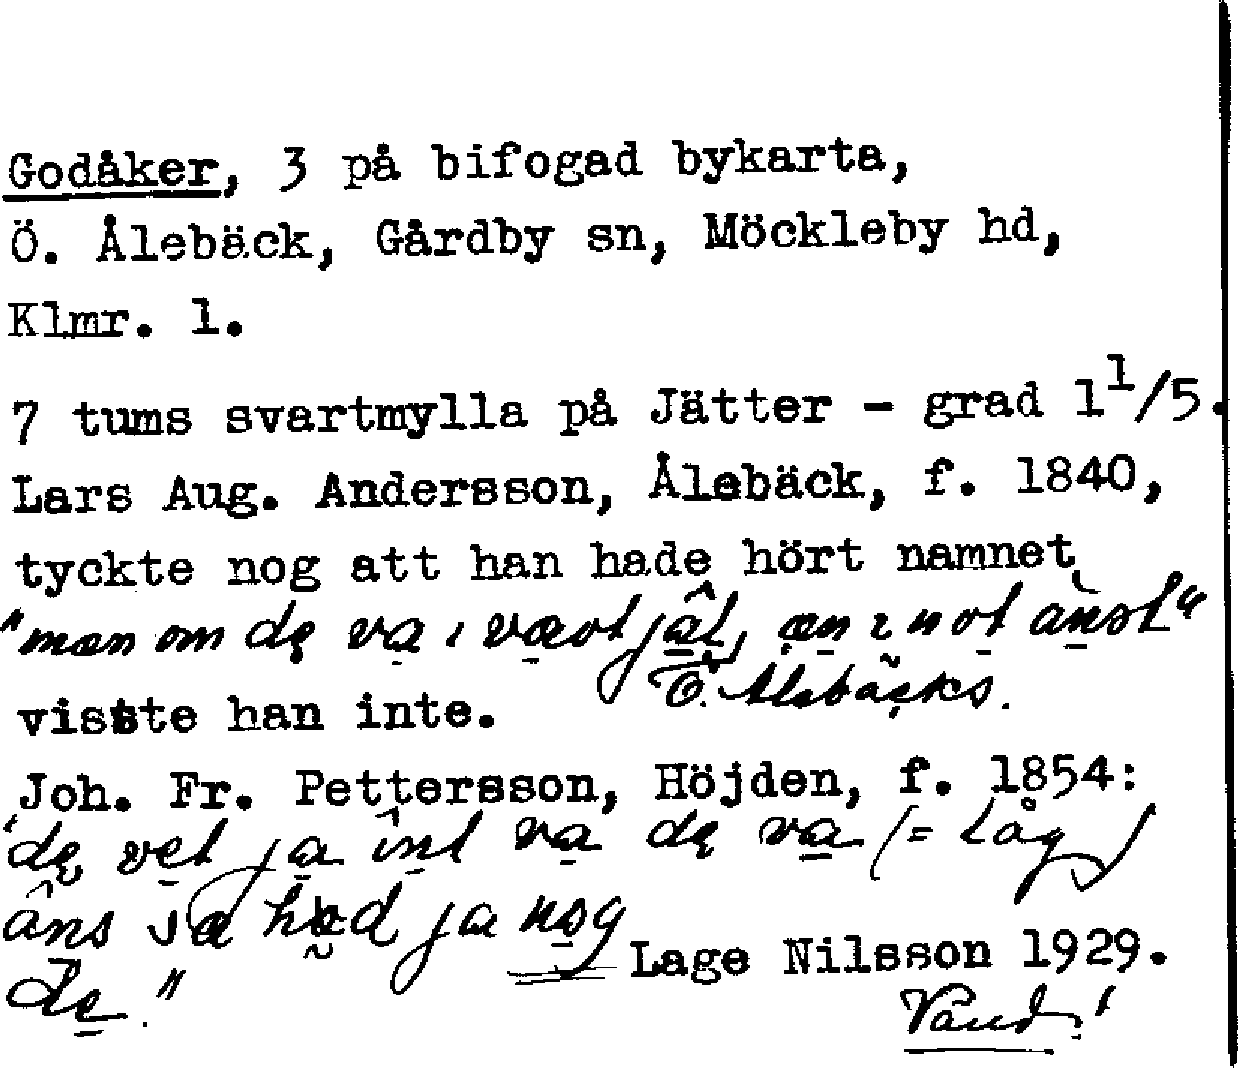 Godåker, 3 på bifogad bykarta,
Ö. Ålebäck, Gårdby sn, Möckleby hd,
Klmr. l.
7 tums svartmylla på Jätter - grad 1 1/5.
Lars Aug. Andersson, Ålebäck, f. 1840,
tyckte nog att han hade hört namnet
"mæn om dę va i
visste han inte. Ö. Alebäcks.
Joh. Fr. Pettersson, Höjden, f. 1854:
"dę vet ja int va dę va (= låg)
ja nog
Lage Nilsson 1929.
de."
Vänd!